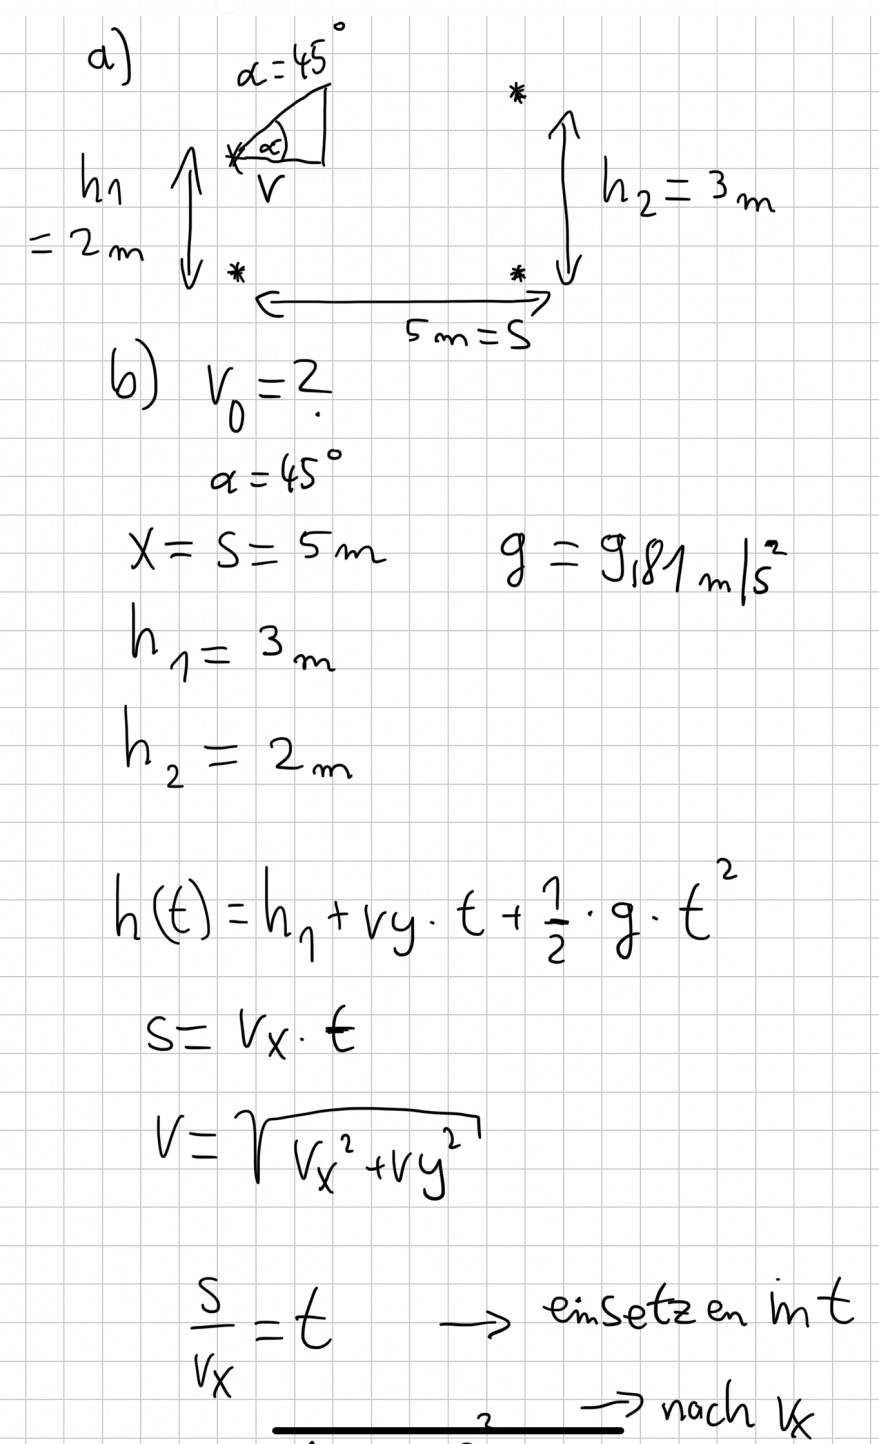 a)
α = 45°
α
v
h₁
= 2 m
h₂ = 3 m
5 m = s
b) v₀ = ?
α = 45°
x = s = 5 m
g = 9,81 m/s²
h₁ = 3 m
h₂ = 2 m
h(t) = h₁ + vy · t + 1/2 · g · t²
s = vₓ · t
v = √(vₓ² + vy²)
s/vₓ = t → einsetzen in t
→ nach vₓ